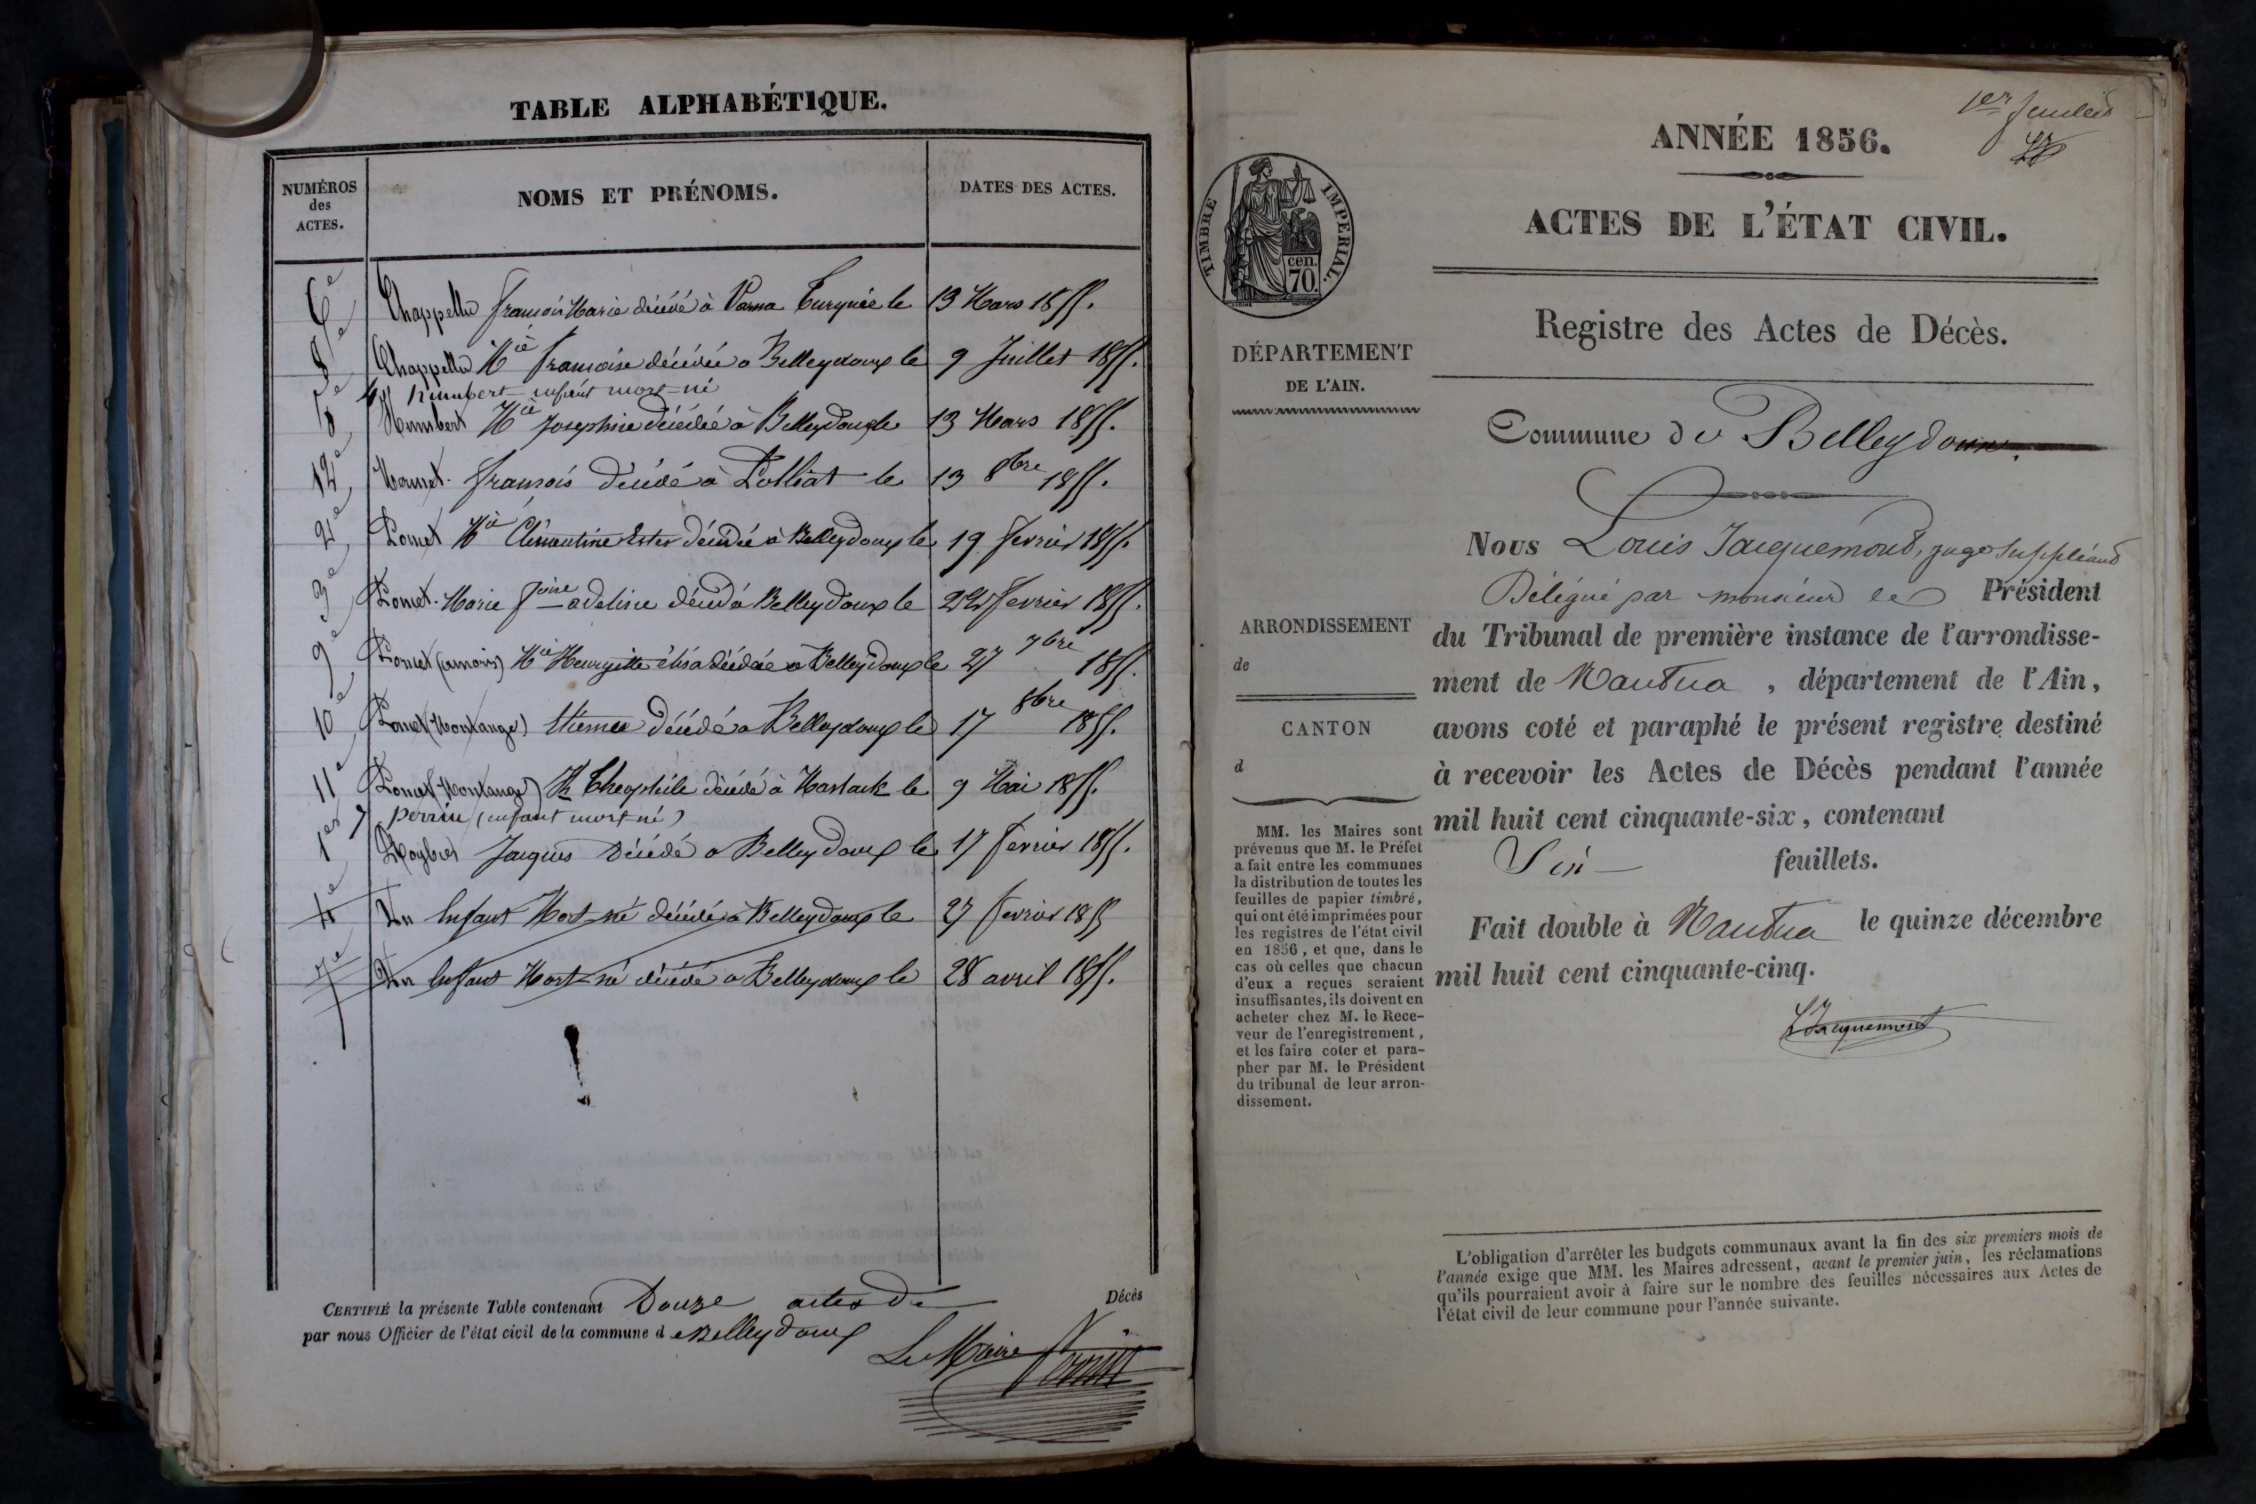 TABLE ALPHABÉTIQUE.
NUMÉROS
des
ACTES.
NOMS ET PRÉNOMS.
DATES DES ACTES.
6e Chappellu françois Marie décédé à Varna Turquie le 13 Mars 1855.
8e Chappellu Mie françoise décédée a Belleydoux le 9 Juillet 1855.
4 humbert enfant mort-né
5e Humbert Mie Josephine décédée à Belleydoux le 13 Mars 1855.
12e françois décédé à le 13 8bre 1855.
2e Pomet Mie Clémentine Ester décédée à Belleydoux le 19 fevrier 1855.
3e Pomet Marie adeline décéd à Belleydoux le 22 fevrier 1855.
9e Pomet Mie élisa décédée a Belleydoux le 27 7bre 1855.
10e Pomet (Montange) Etienne décédé a Belleydoux le 17 8bre 1855.
11e Pomet (Montange) Theophile décédé à le 9 Mai 1855.
7 perrin (enfant mort-né)
1er Jacques Décédé a Belleydoux le 17 fevrier 1855.
4e Un Enfant Mort-né décédé à Belleydoux le 27 fevrier 1855
7e Un Enfant Mort-né décédé a Belleydoux le 28 avril 1855.
CERTIFIÉ la présente Table contenant Douze actes de Décès
par nous Officier de l'état civil de la commune d e Belleydoux
Le Maire Perrin
1er feuillet
LJ
ANNÉE 1856.
ACTES DE L'ÉTAT CIVIL.
TIMBRE IMPERIAL.
cen.
70.
Registre des Actes de Décès.
DÉPARTEMENT
DE L'AIN.
Commune de Belleydoux.
Nous Louis Jacquemont, juge suppléant
Délégué par monsieur le Président
du Tribunal de première instance de l'arrondisse-
ment de Nantua, département de l'Ain,
avons coté et paraphé le présent registre destiné
à recevoir les Actes de Décès pendant l'année
mil huit cent cinquante-six, contenant
Six feuillets.
Fait double à Nantua le quinze décembre
mil huit cent cinquante-cinq.
LJacquemont
ARRONDISSEMENT
de
CANTON
d
MM. les Maires sont
prévenus que M. le Préfet
a fait entre les communes
la distribution de toutes les
feuilles de papier timbré,
qui ont été imprimées pour
les registres de l'état civil
en 1856, et que, dans le
cas où celles que chacun
d'eux a reçues seraient
insuffisantes, ils doivent en
acheter chez M. le Rece-
veur de l'enregistrement,
et les faire coter et para-
pher par M. le Président
du tribunal de leur arron-
dissement.
L'obligation d'arrêter les budgets communaux avant la fin des six premiers mois de
l'année exige que MM. les Maires adressent, avant le premier juin, les réclamations
qu'ils pourraient avoir à faire sur le nombre des feuilles nécessaires aux Actes de
l'état civil de leur commune pour l'année suivante.